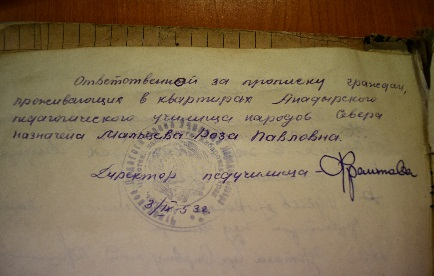 Ответственной за прописку граждан,
проживающих в квартирах Анадырского
педагогического училища народов Севера
назначена Мальцева Роза Павловна.
Директор педучилища -
3/IX-53г.